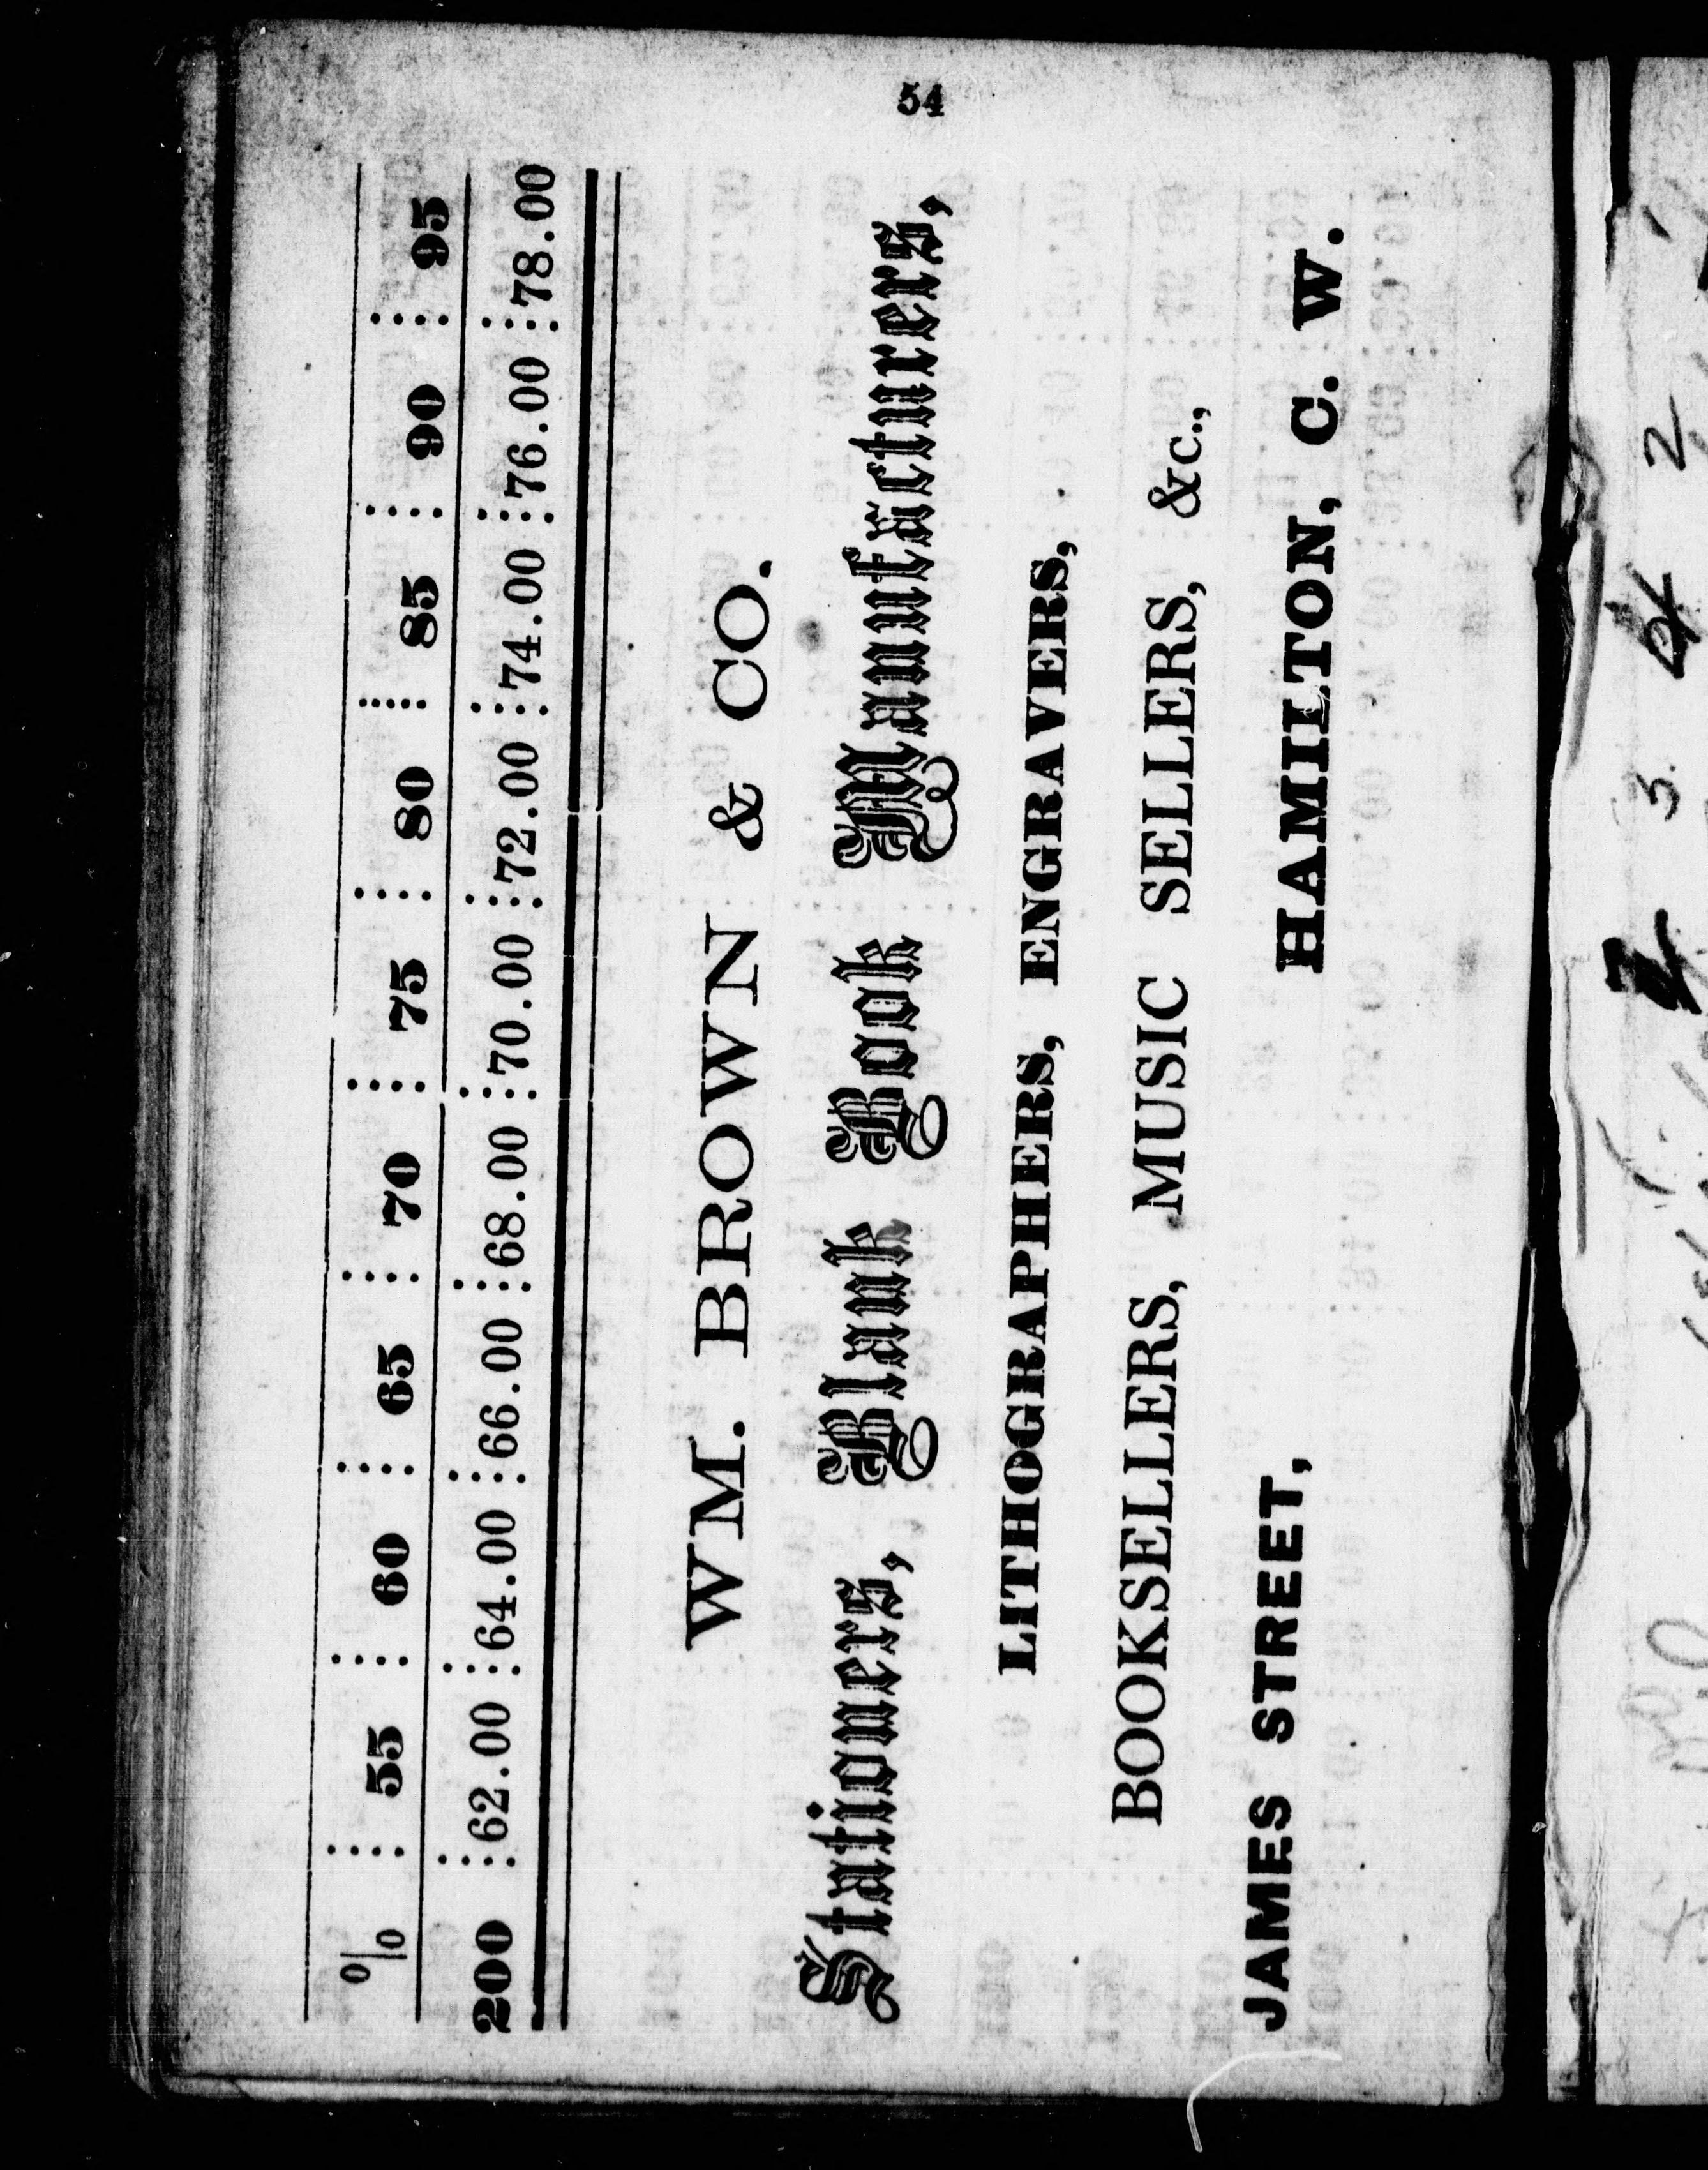 54
% 55 60 65 70 75 80 85 90 95
200 62.00 64.00 66.00 68.00 70.00 72.00 74.00 76.00 78.00
WM. BROWN & CO.
Stationers, Blank Book Manufacturers,
LITHOGRAPHERS, ENGRAVERS,
BOOKSELLERS, MUSIC SELLERS, &c.,
JAMES STREET, HAMILTON, C. W.